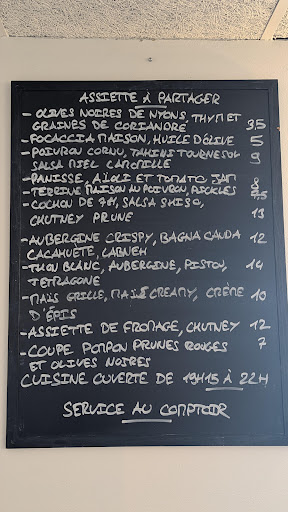 ASSIETTE À PARTAGER
- OLIVES NOIRES DE NYONS, THYM ET
GRAINES DE CORIANDRE 3,5
- FOCACCIA MAISON, HUILE D'OLIVE 5
- POIVRON CORNU, TAHINI TOURNESOL 9
SALSA MIEL CAMOMILLE
- PANISSE, AÏOLI ET TOMATO JAM 8
- TERRINE MAISON AU POIVRON, PICKLES
- COCHON DE 7H, SALSA SHISO,
CHUTNEY PRUNE 13
- AUBERGINE CRISPY, BAGNA CAUDA 12
CACAHUÈTE, LABNEH
- THON BLANC, AUBERGINE, PISTOU, 14
TETRAGONE
- MAÏS GRILLÉ, MAÏS CREAMY, CRÈME 10
D'ÉPIS
- ASSIETTE DE FROMAGE, CHUTNEY 12
- COUPE POMPON PRUNES ROUGES 7
ET OLIVES NOIRES
CUISINE OUVERTE DE 19H15 À 22H
SERVICE AU COMPTOIR